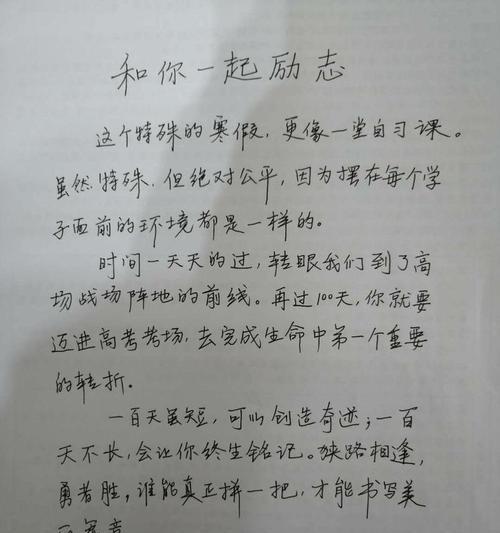 和你一起励志
这个特殊的寒假,更像一堂自习课。
虽然特殊,但绝对公平,因为摆在每个学
子面前的环境都是一样的。
时间一天天的过,转眼我们到了高
场战场阵地的前线。再过100天,你就要
迈进高考考场,去完成生命中第一个重要
的转折。
一百天虽短,可以创造奇迹;一百
天不长,会让你终生铭记。狭路相逢,
勇者胜,谁能真正拼一把,才能书写美